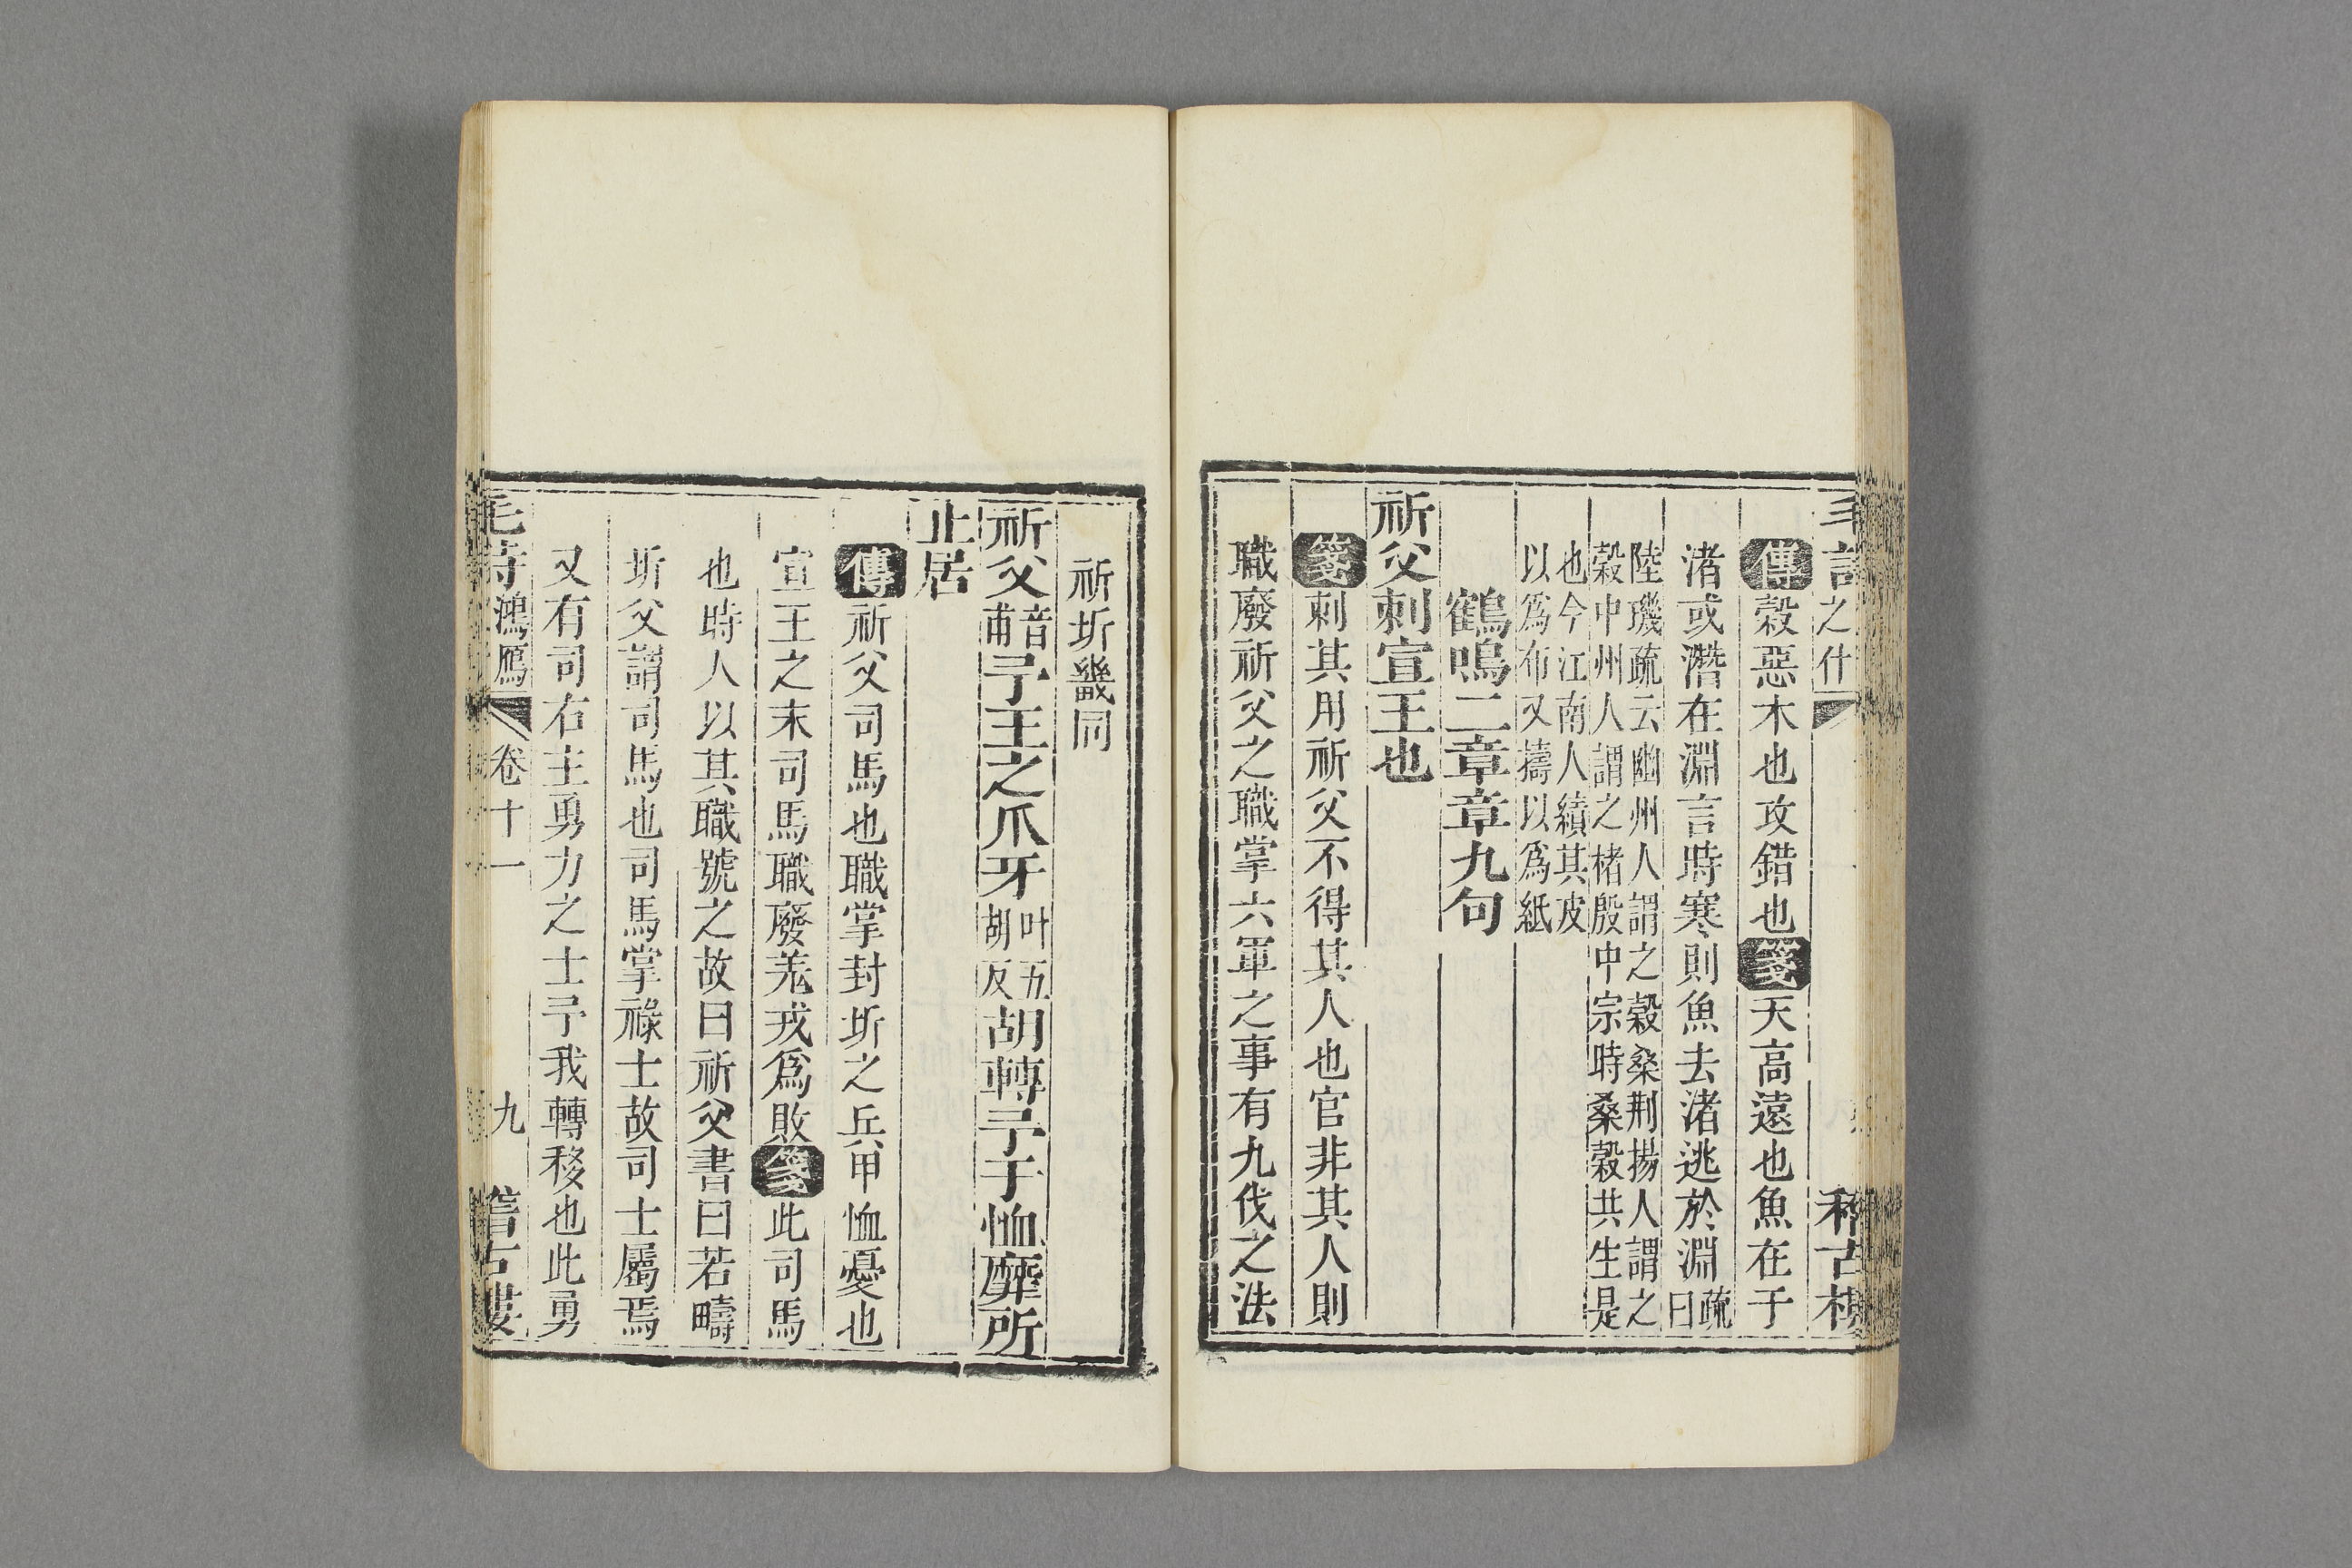 之什
稽古樓
傳榖惡木也攻錯也箋天高遠也魚在于
渚或潛在淵言時寒則魚去渚逃於淵疏曰
陸璣疏云幽州人謂之榖桑荆揚人謂之
榖中州人謂之楮殷中宗時桑榖共生是
也今江南人績其皮
以爲布又擣以爲紙
鶴鳴二章章九句
祈父刺宣王也
箋刺其用祈父不得其人也官非其人則
職廢祈父之職掌六軍之事有九伐之法
祈圻畿同
祈父音甫予王之爪牙叶五胡反胡轉予于恤靡所
止居
傳祈父司馬也職掌封圻之兵甲恤憂也
宣王之末司馬職廢羌戎爲敗箋此司馬
也時人以其職號之故曰祈父書曰若疇
圻父謂司馬也司馬掌祿士故司士屬焉
又有司右主勇力之士予我轉移也此勇
毛詩鴻鴈 卷十一 九 稽古樓